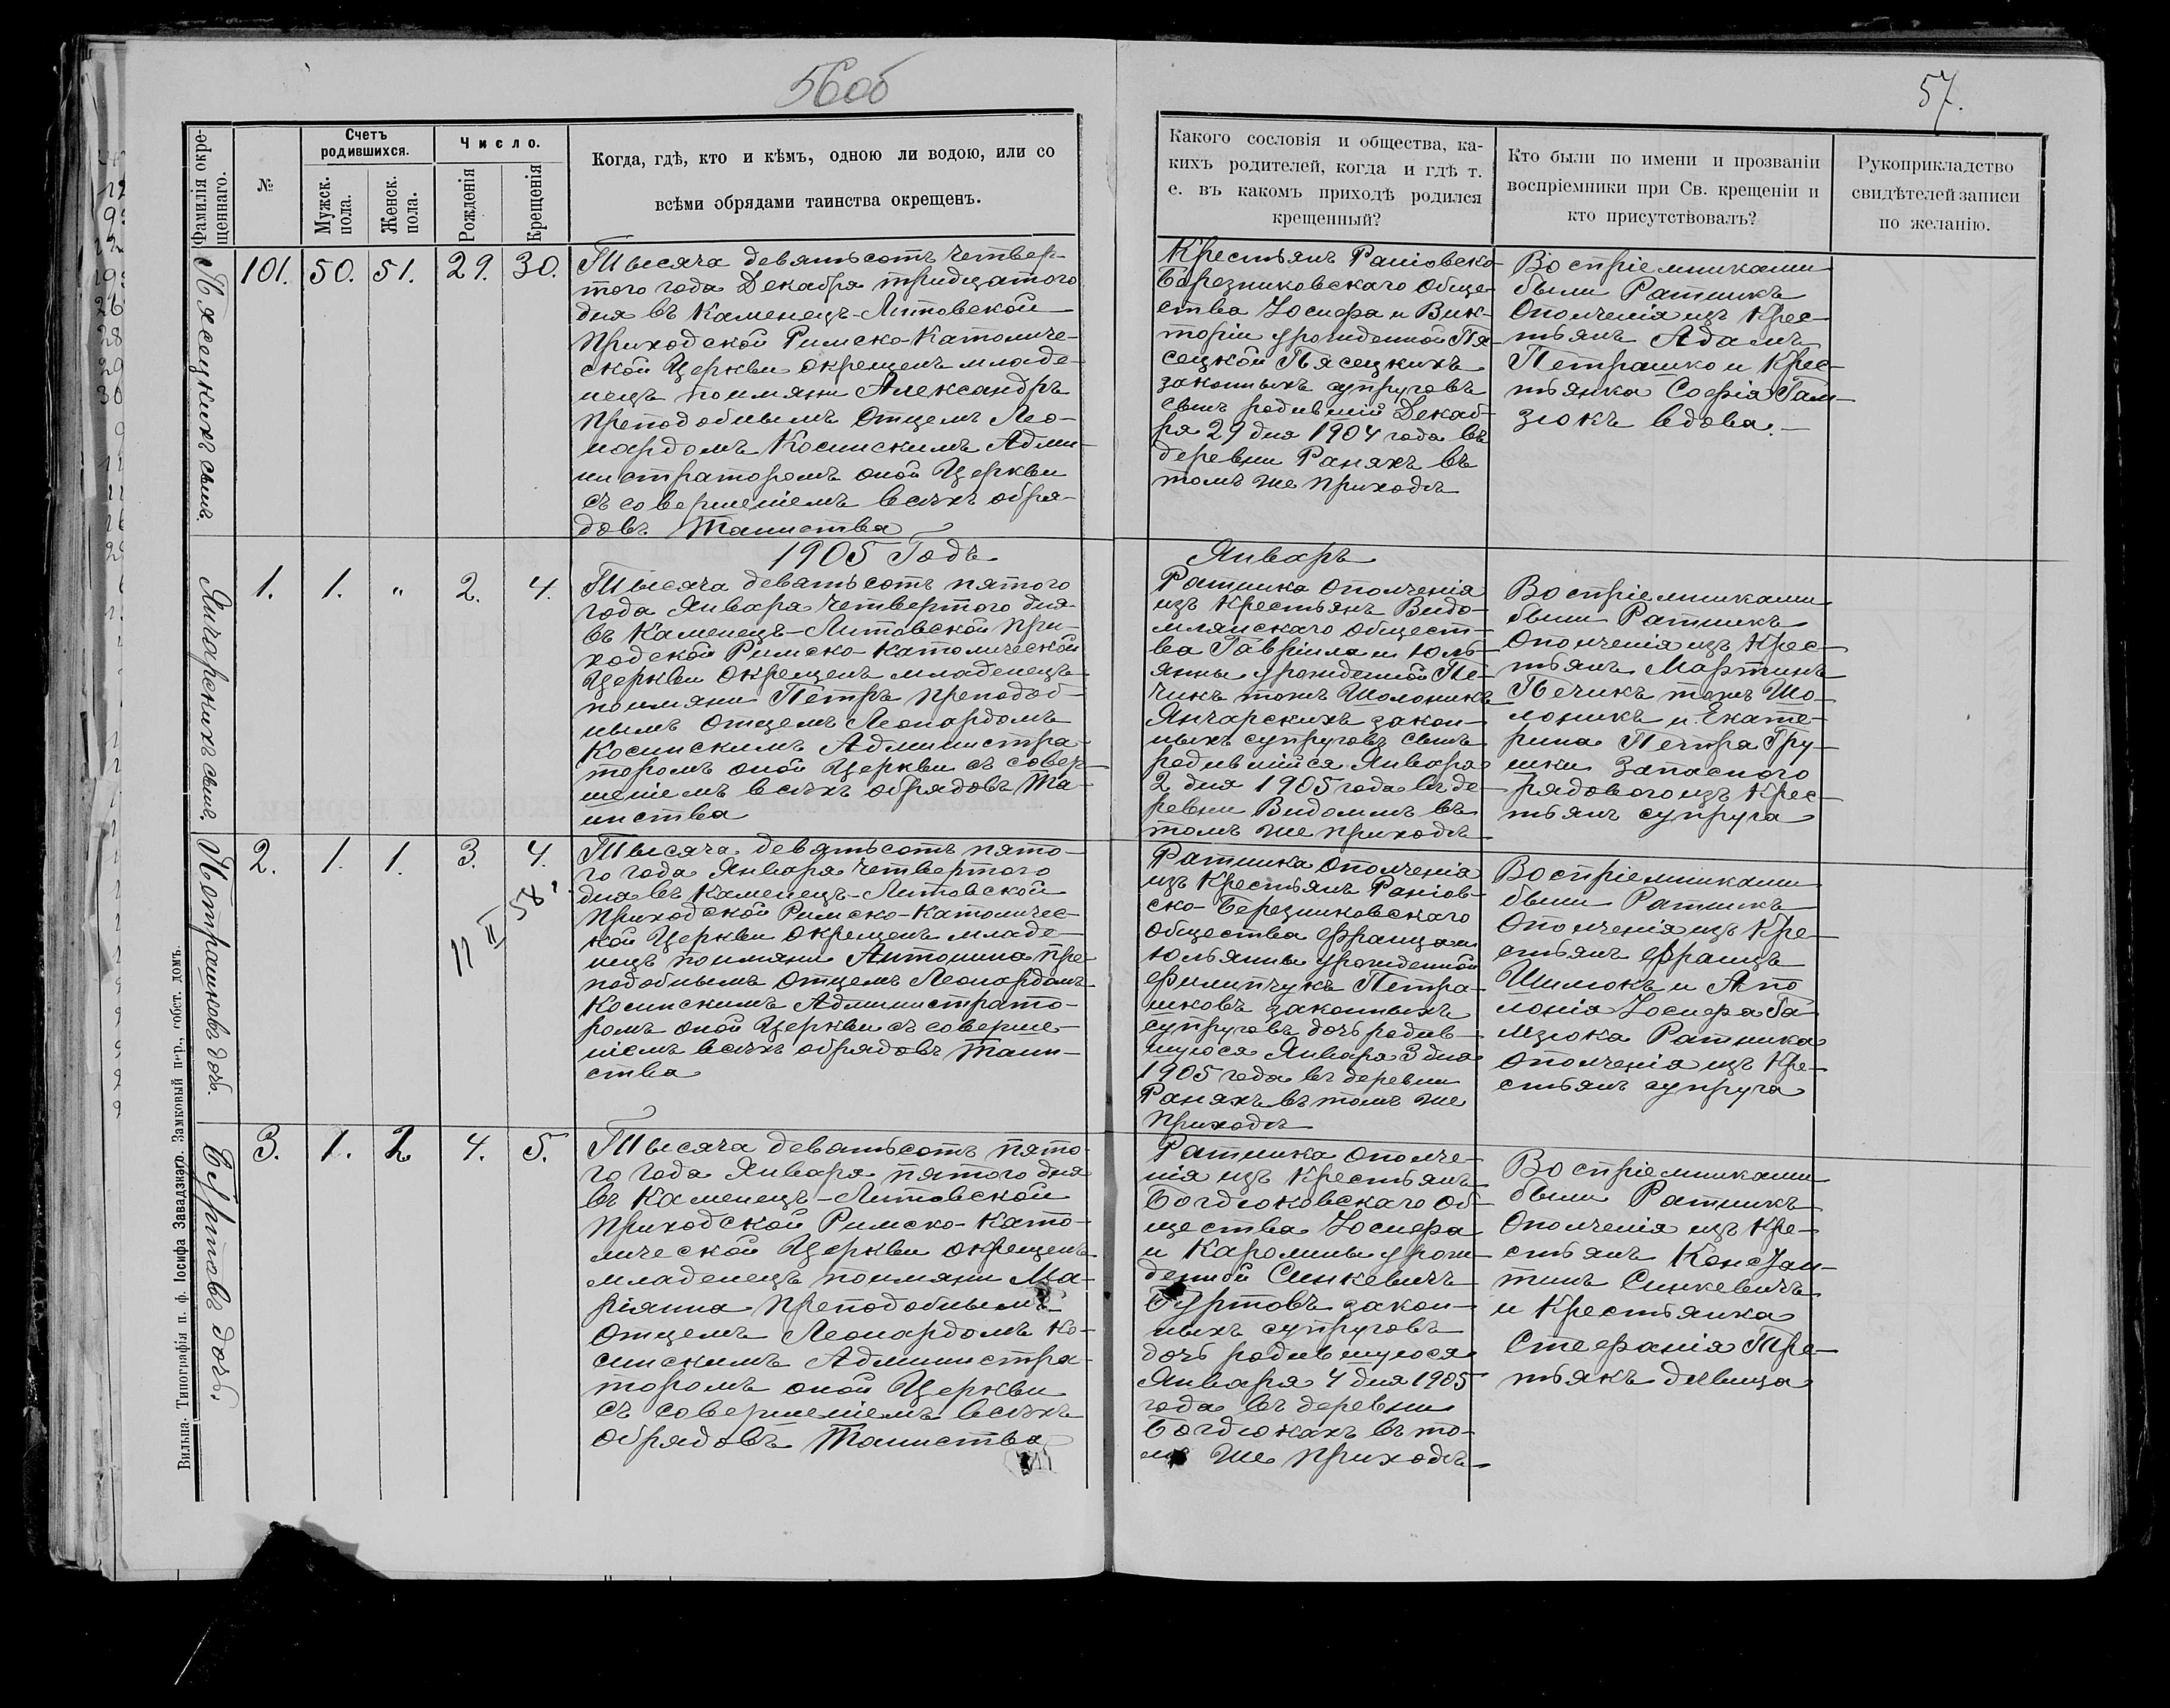 56об
57.
Фамилія окре-
щеннаго.
№
Счетъ
родившихся.
Мужск.
пола.
Женск.
пола.
Число.
Рожденія
Крещенія
Когда, гдѣ, кто и кѣмъ, одною ли водою, или со
всѣми обрядами таинства окрещенъ.
Какого сословія и общества, ка-
кихъ родителей, когда и гдѣ т.
е. въ какомъ приходѣ родился
крещенный?
Кто были по имени и прозванію
воспріемники при Св. крещеніи и
кто присутствовалъ?
Рукоприкладство
свидѣтелей записи
по желанію.
Пясецкихъ сынъ.
101. 50. 51. 29. 30.
Тысяча девятьсотъ четвер-
того года Декабря тридцатого
дня въ Каменецъ-Литовской
Приходской Римско-Католиче-
ской Церкви окрещенъ младе-
нецъ поимяни Александръ
преподобнымъ Отцемъ Лео-
нардомъ Косинскимъ Адми-
нистраторомъ оной Церкви
съ совершеніемъ всѣхъ обря-
довъ Таинства
Крестьянъ Раніовско
Березниковскаго Обще-
ства Іосифа и Вик-
торіи урожденной Пя-
сецкой Пясецкихъ
законныхъ супруговъ
сынъ родивший Декаб-
ря 29 дня 1904 года въ
деревни Раняхъ въ
томъ же приходѣ
Воспріемниками
были Ратникъ
Ополченія изъ Крес-
тьянъ Адамъ
Петрашко и Крес-
тьянка Софія Гам-
зюкъ вдова.
1905 Годъ
Январь
Янчарскихъ сынъ.
1. 1. " 2. 4.
Тысяча девятьсотъ пятого
года Января четвертого дня
въ Каменецъ-Литовской При-
ходской Римско-Католической
Церкви окрещенъ младенецъ
поимяни Петръ преподоб-
нымъ Отцемъ Леонардомъ
Косинскимъ Администра-
торомъ оной Церкви съ совер-
шеніемъ всѣхъ обрядовъ Та-
инства
Ратника Ополченія
изъ Крестьянъ Видо-
млянскаго Общест-
ва Гавріила и Юль-
янны урожденной Пе-
чикъ тожъ Шолоникъ
Янчарскихъ закон-
ныхъ супруговъ сынъ
родившійся Января
2 дня 1905 года въ де-
ревни Видомлѣ въ
томъ же приходѣ
Воспріемниками
были Ратникъ
Ополченія изъ Крес-
тьянъ Мартинъ
Печикъ тожъ Шо-
лоникъ и Екате-
рина Петра Гру-
шки Запасного
рядового изъ Крес-
тьянъ супруга
Петрашковъ дочь.
2. 1. 1. 3. 4.
11 II 58 г.
Тысяча девятьсотъ пято-
го года Января четвертого
дня въ Каменецъ-Литовской
Приходской Римско-Католичес-
кой Церкви окрещенъ младе-
нецъ поимяни Антонина пре-
подобнымъ Отцемъ Леонардомъ
Косинскимъ Администрато-
ромъ оной Церкви съ соверше-
ніемъ всѣхъ обрядовъ Таин-
ства
Ратника Ополченія
изъ Крестьянъ Раніов-
ско-Березниковскаго
Общества Франца и
Юльянны урожденной
Филипчукъ Петра-
шковъ законныхъ
супруговъ дочь родив-
шуюся Января 3 дня
1905 года въ деревни
Раняхъ въ томъ же
приходѣ
Воспріемниками
были Ратникъ
Ополченія изъ Кре-
стьянъ Францъ
Шилюкъ и Апо
лонія Іосифа Га-
мзюка Ратника
Ополченія изъ Кре-
стьянъ супруга
Буртовъ дочь.
3. 1. 2 4. 5.
Тысяча девятьсотъ пято-
го года Января пятого дня
въ Каменецъ-Литовской
Приходской Римско-Като-
лической Церкви окрещенъ
младенецъ поимяни Ма-
ріянна преподобнымъ
Отцемъ Леонардомъ Ко-
синскимъ Администра-
торомъ оной Церкви
съ совершеніемъ всѣхъ
обрядовъ Таинства
Ратника Ополче-
нія изъ Крестьянъ
Богдюковскаго Об-
щества Іосифа
и Каролины урож-
денной Синкевичъ
Буртовъ закон-
ныхъ супруговъ
дочь родившуюся
Января 4 дня 1905
года въ деревни
Богдюкахъ въ то-
мъ же приходѣ
Воспріемниками
были Ратникъ
Ополченія изъ Кре-
стьянъ Констан-
тинъ Синкевичъ
и Крестьянка
Стефанія Тре-
тьякъ дѣвица
Вильна. Типографія п. ф. Іосифа Завадзкаго. Замковый пер., собст. домъ.